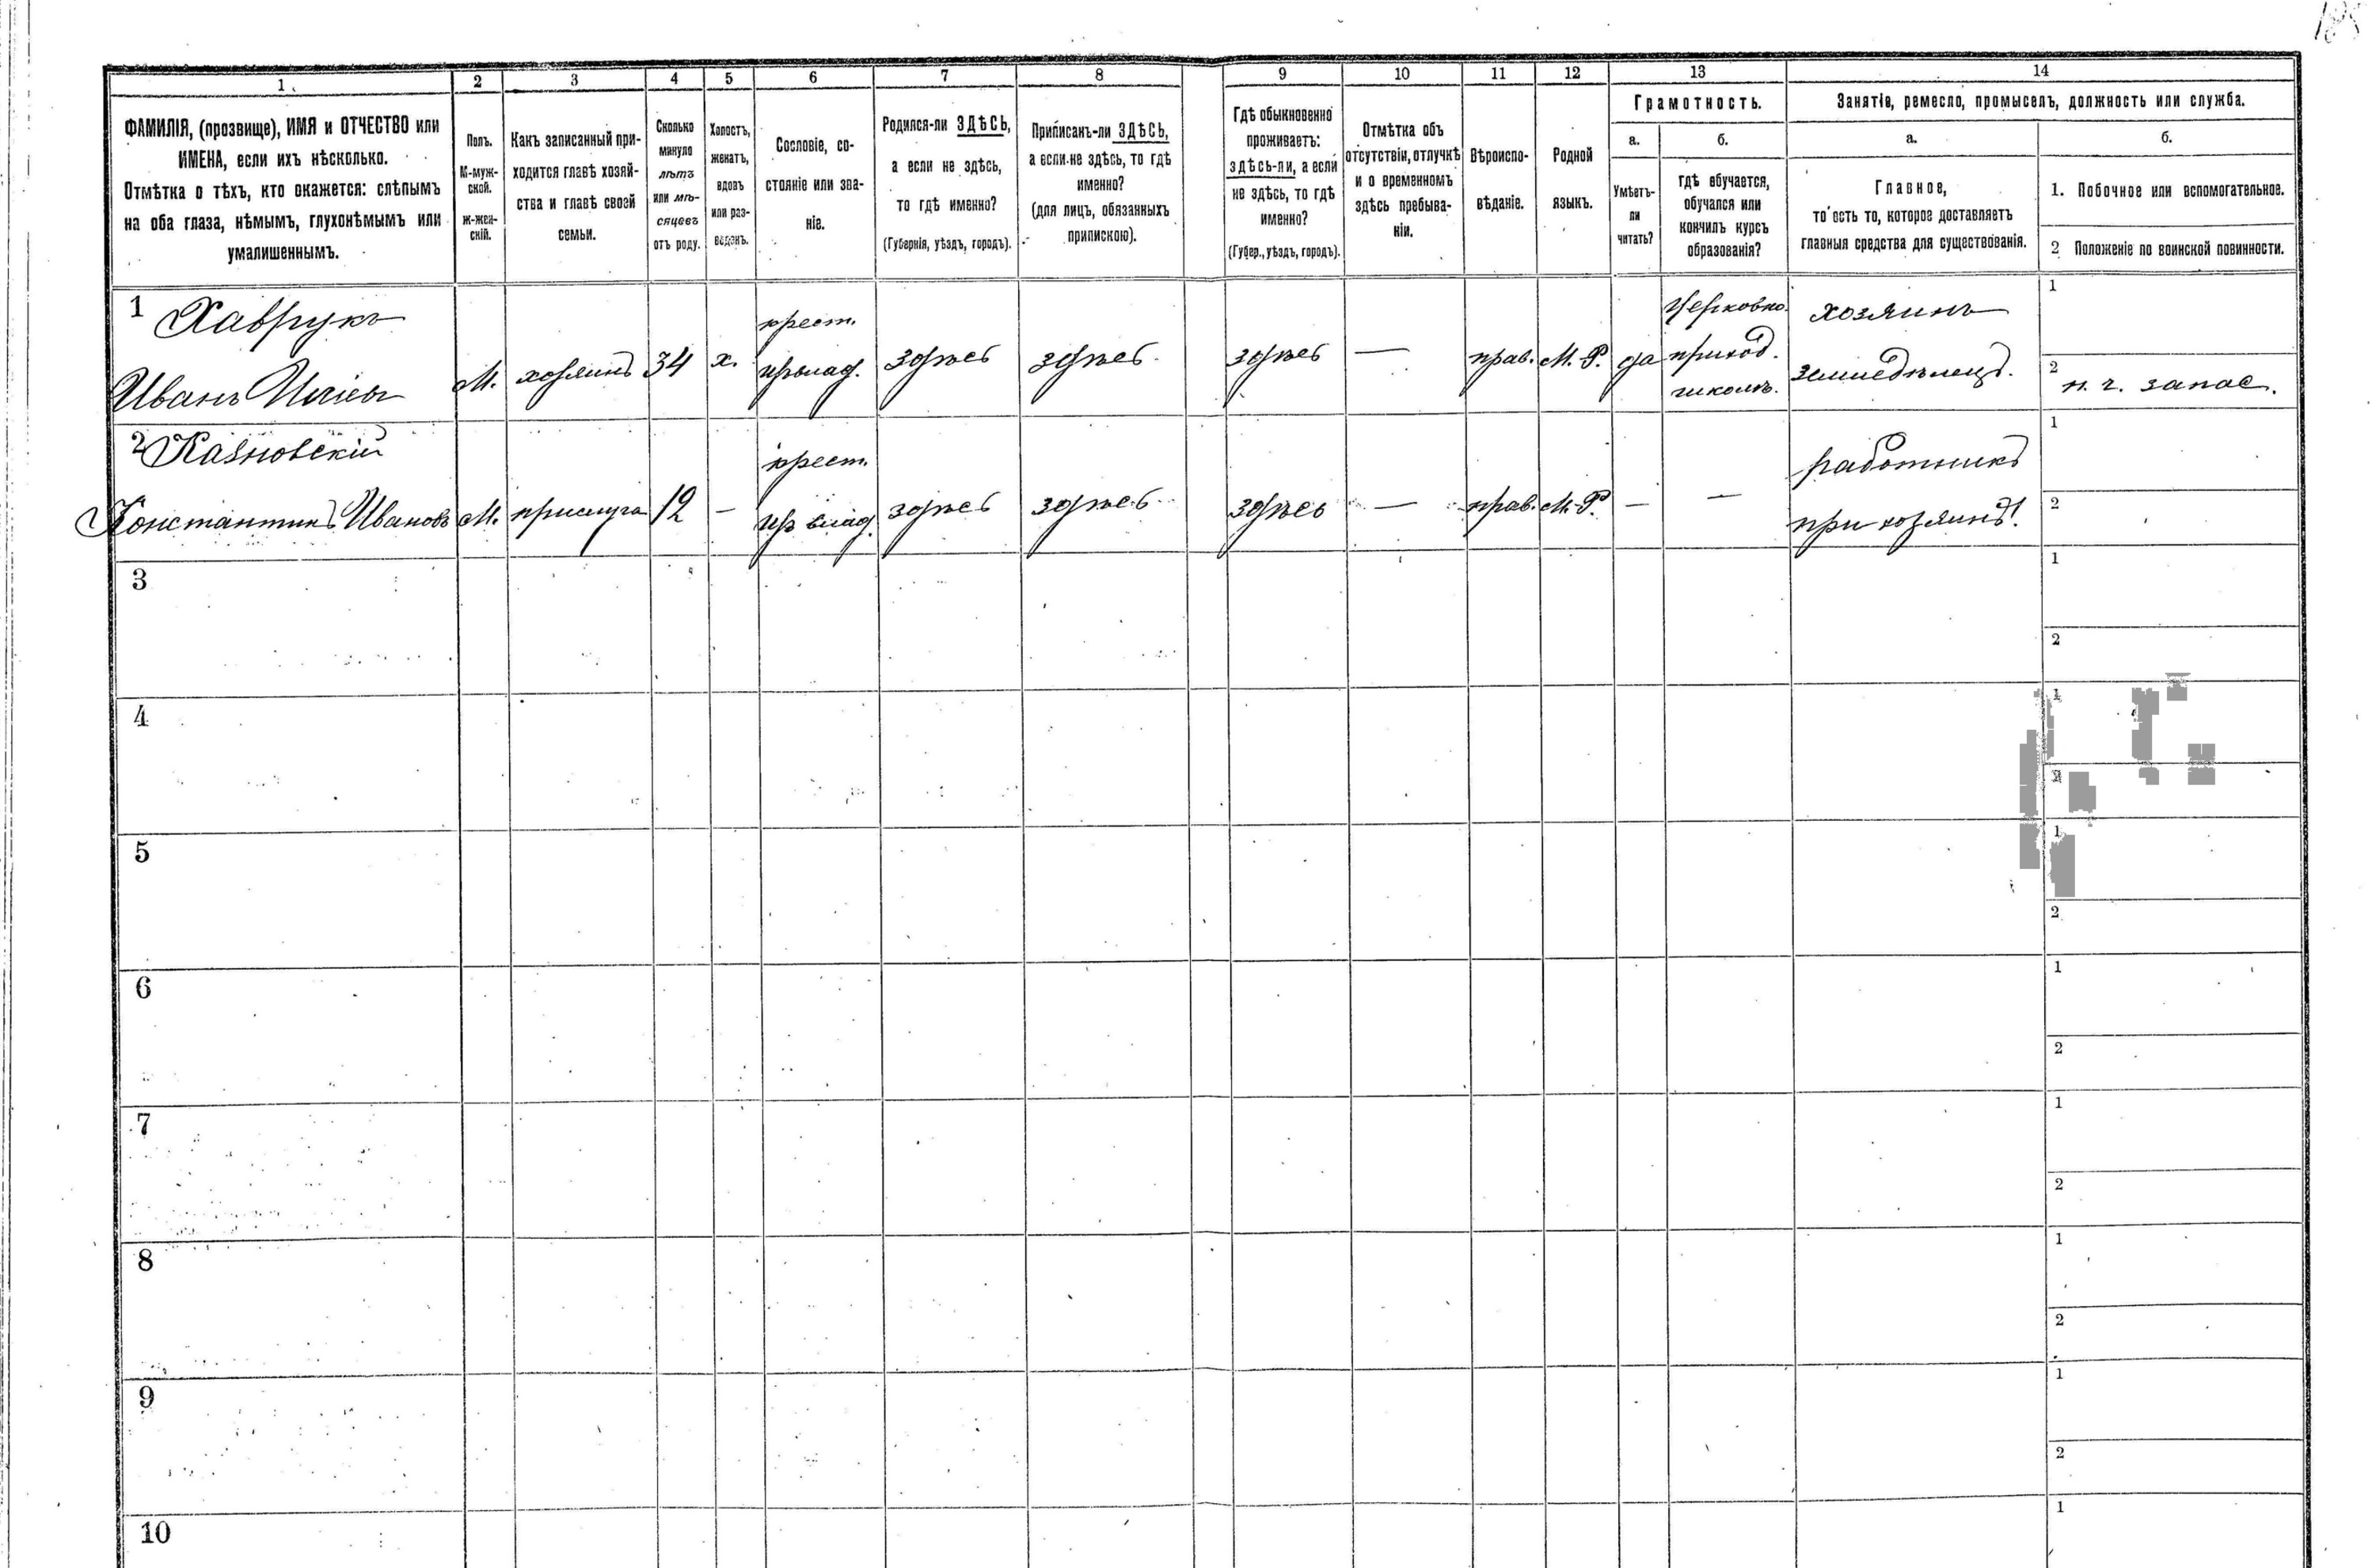 1 2 3 4 5 6 7 8 9 10 11 12 13 14
ФАМИЛІЯ, (прозвище), ИМЯ и ОТЧЕСТВО или
ИМЕНА, если ихъ нѣсколько.
Отмѣтка о тѣхъ, кто окажется: слѣпымъ
на оба глаза, нѣмымъ, глухонѣмымъ или
умалишеннымъ.
Полъ.
М-муж-
ской.
ж-жен-
скій.
Какъ записанный при-
ходится главѣ хозяй-
ства и главѣ своей
семьи.
Сколько
минуло
лѣтъ
или мѣ-
сяцевъ
отъ роду.
Холостъ,
женатъ,
вдовъ
или раз-
веденъ.
Сословіе, со-
стояніе или зва-
ніе.
Родился-ли ЗДѢСЬ,
а если не здѣсь,
то гдѣ именно?
(Губернія, уѣздъ, городъ).
Приписанъ-ли ЗДѢСЬ,
а если не здѣсь, то гдѣ
именно?
(для лицъ, обязанныхъ
припискою).
Гдѣ обыкновенно
проживаетъ:
здѣсь-ли, а если
не здѣсь, то гдѣ
именно?
(Губер., уѣздъ, городъ).
Отмѣтка объ
отсутствіи, отлучкѣ
и о временномъ
здѣсь пребыва-
ніи.
Вѣроиспо-
вѣданіе.
Родной
языкъ.
Грамотность.
а.
Умѣетъ-
ли
читать?
б.
гдѣ обучается,
обучался или
кончилъ курсъ
образованія?
Занятіе, ремесло, промыселъ, должность или служба.
а.
Главное,
то есть то, которое доставляетъ
главныя средства для существованія.
б.
1. Побочное или вспомогательное.
2 Положеніе по воинской повинности.
1 Хаврукъ крест. Церковно. хозяинъ 1
Иванъ М. хозяинъ 34 х. здѣсь здѣсь здѣсь — прав. М. Р. да приход. земледѣлецъ. 2 н. ч. запас.
школѣ.
2 Казновскій крест. работникъ 1
Константинъ Ивановъ М. прислуга 12 — здѣсь здѣсь здѣсь — прав. М. Р. — — при хозяинѣ. 2
3 1
2
4 1
2
5 1
2
6 1
2
7 1
2
8 1
2
9 1
2
10 1